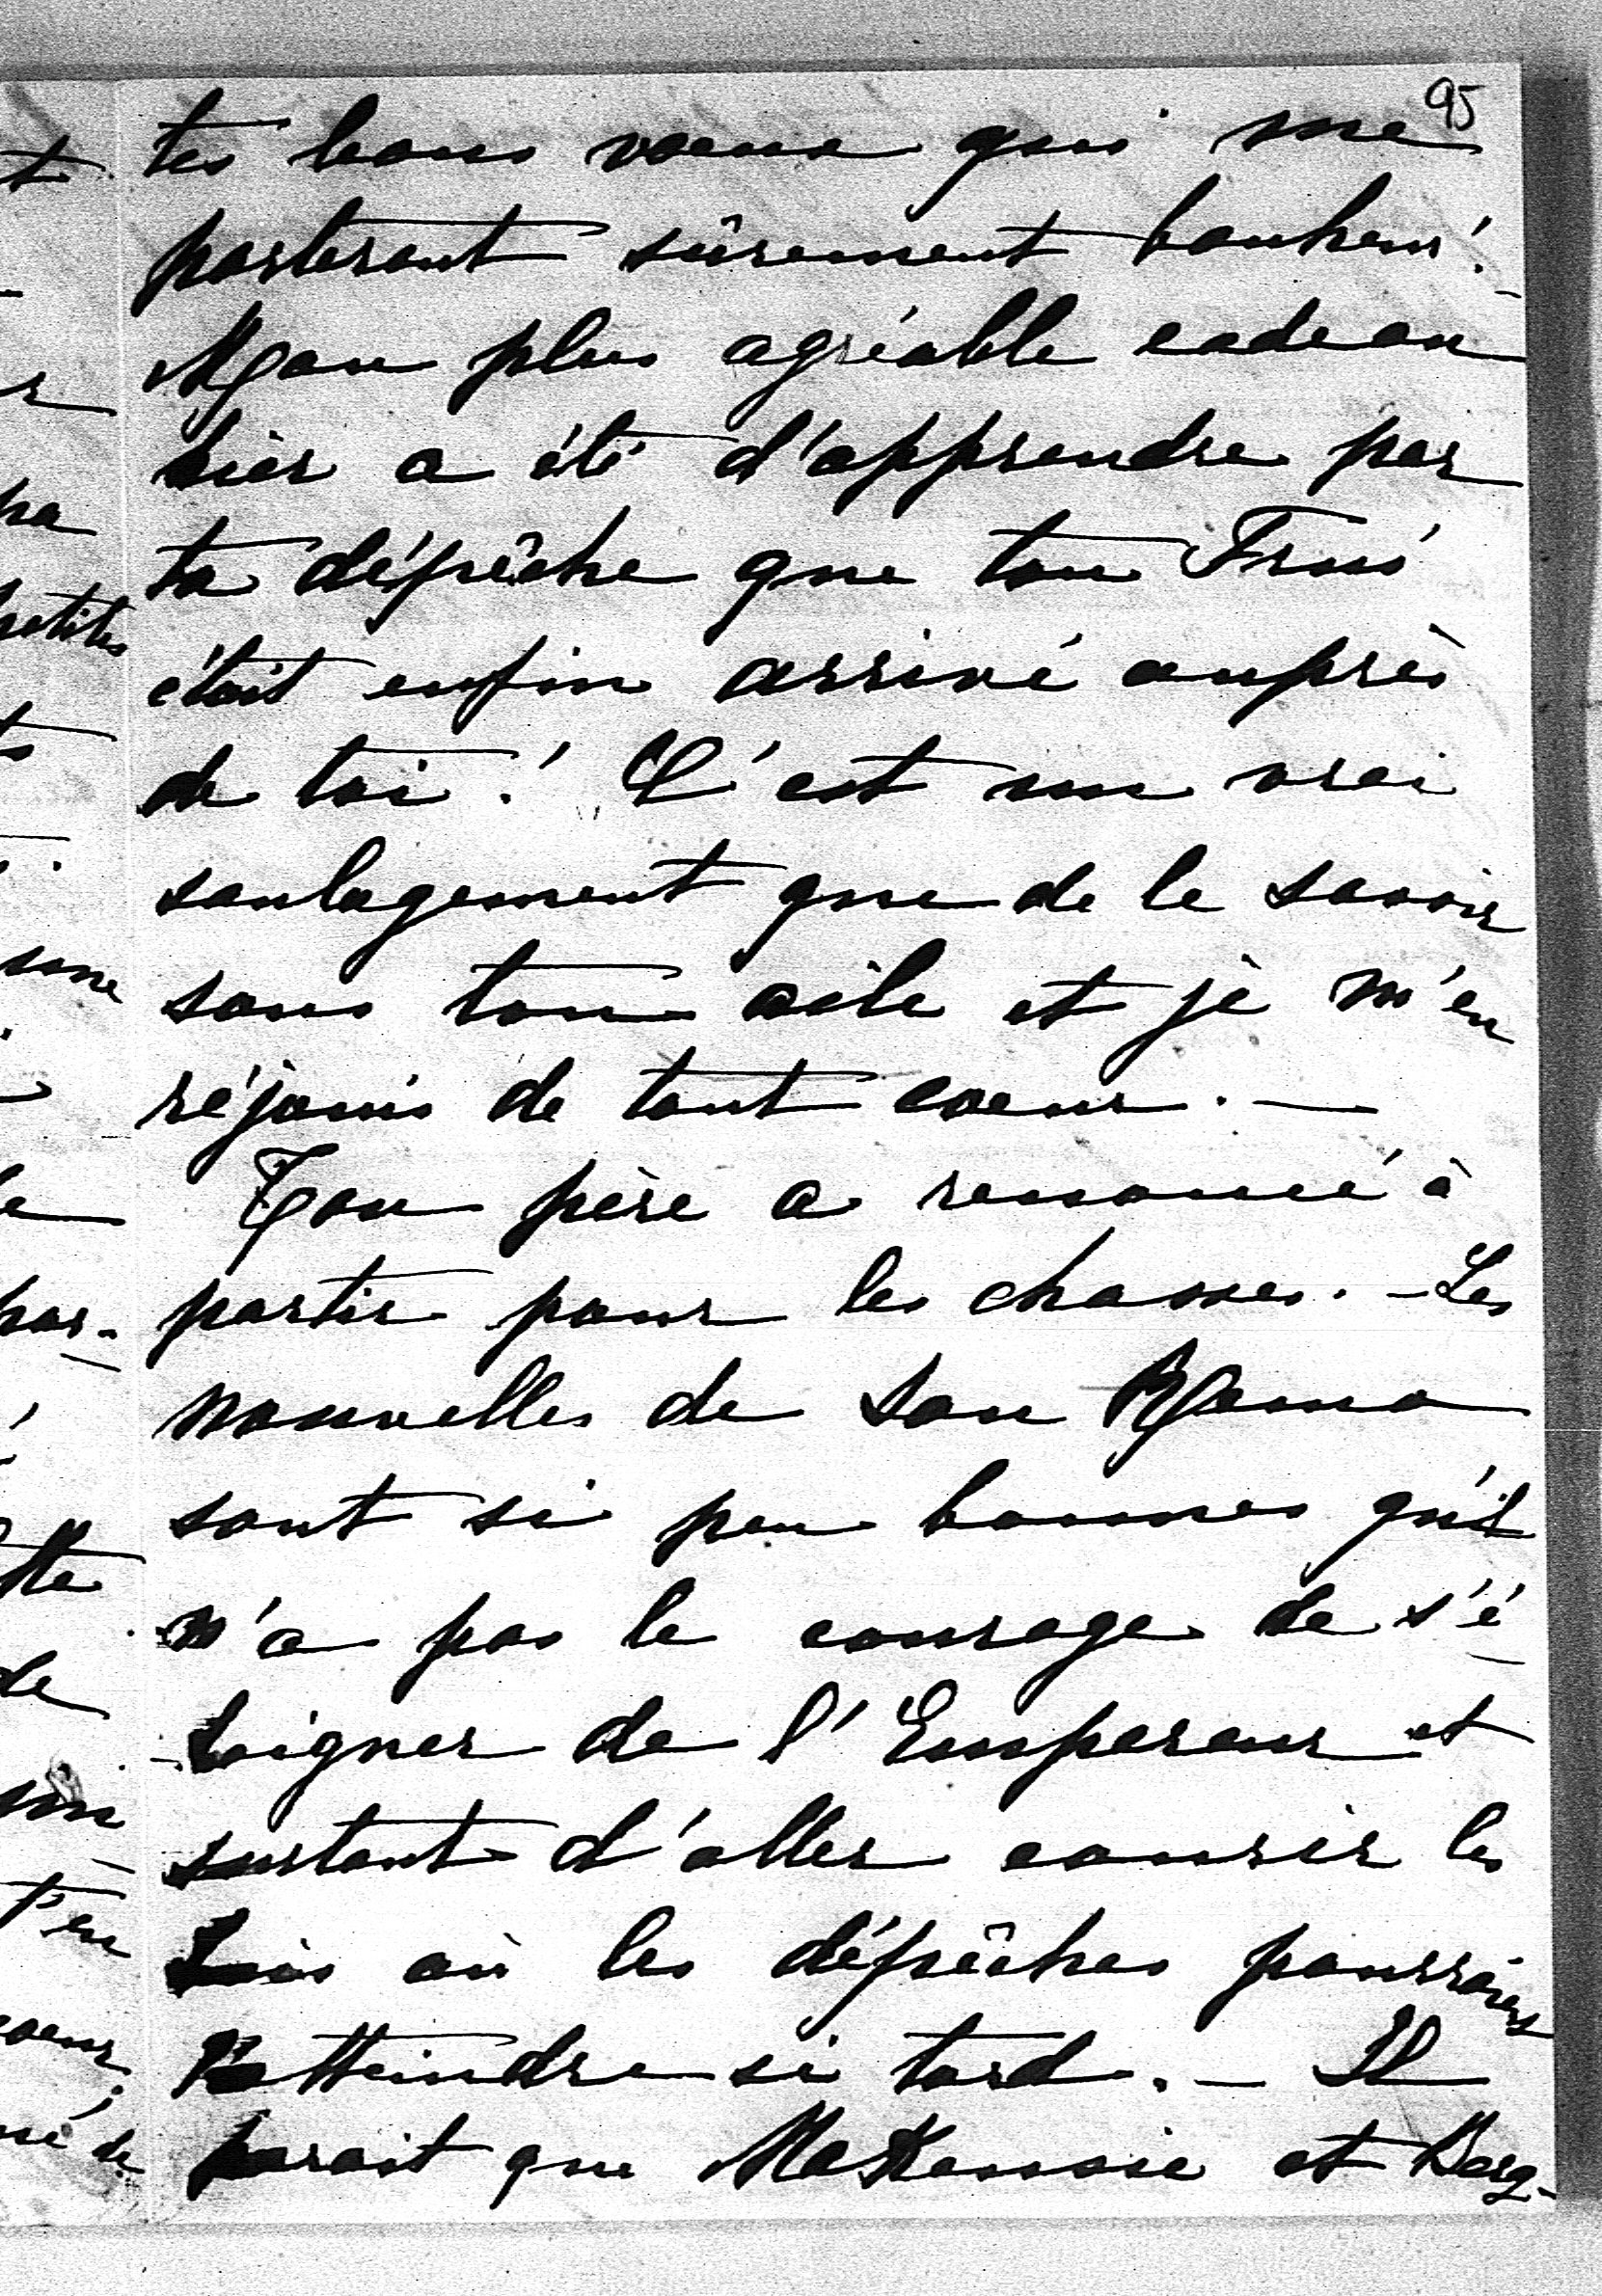 95
tes bons vœux qui me
porteront sûrement bonheur!
Mon plus agréable cadeau
hier a été d'apprendre par
ta dépêche que ton
était enfin arrivé auprès
de toi! C'est un vrai
soulagement que de le savoir
sous ton aile et je m'en
réjouis de tout coeur. —
Ton père a renoncé à
partir pour les chasses. — Les
nouvelles de son
sont si peu bonnes qu'il
n'a pas le courage de s'é-
loigner de l'Empereur et
surtout d'aller courir les
où les dépêches pourraient
l'atteindre si tard. — Il
parait que et Berg-